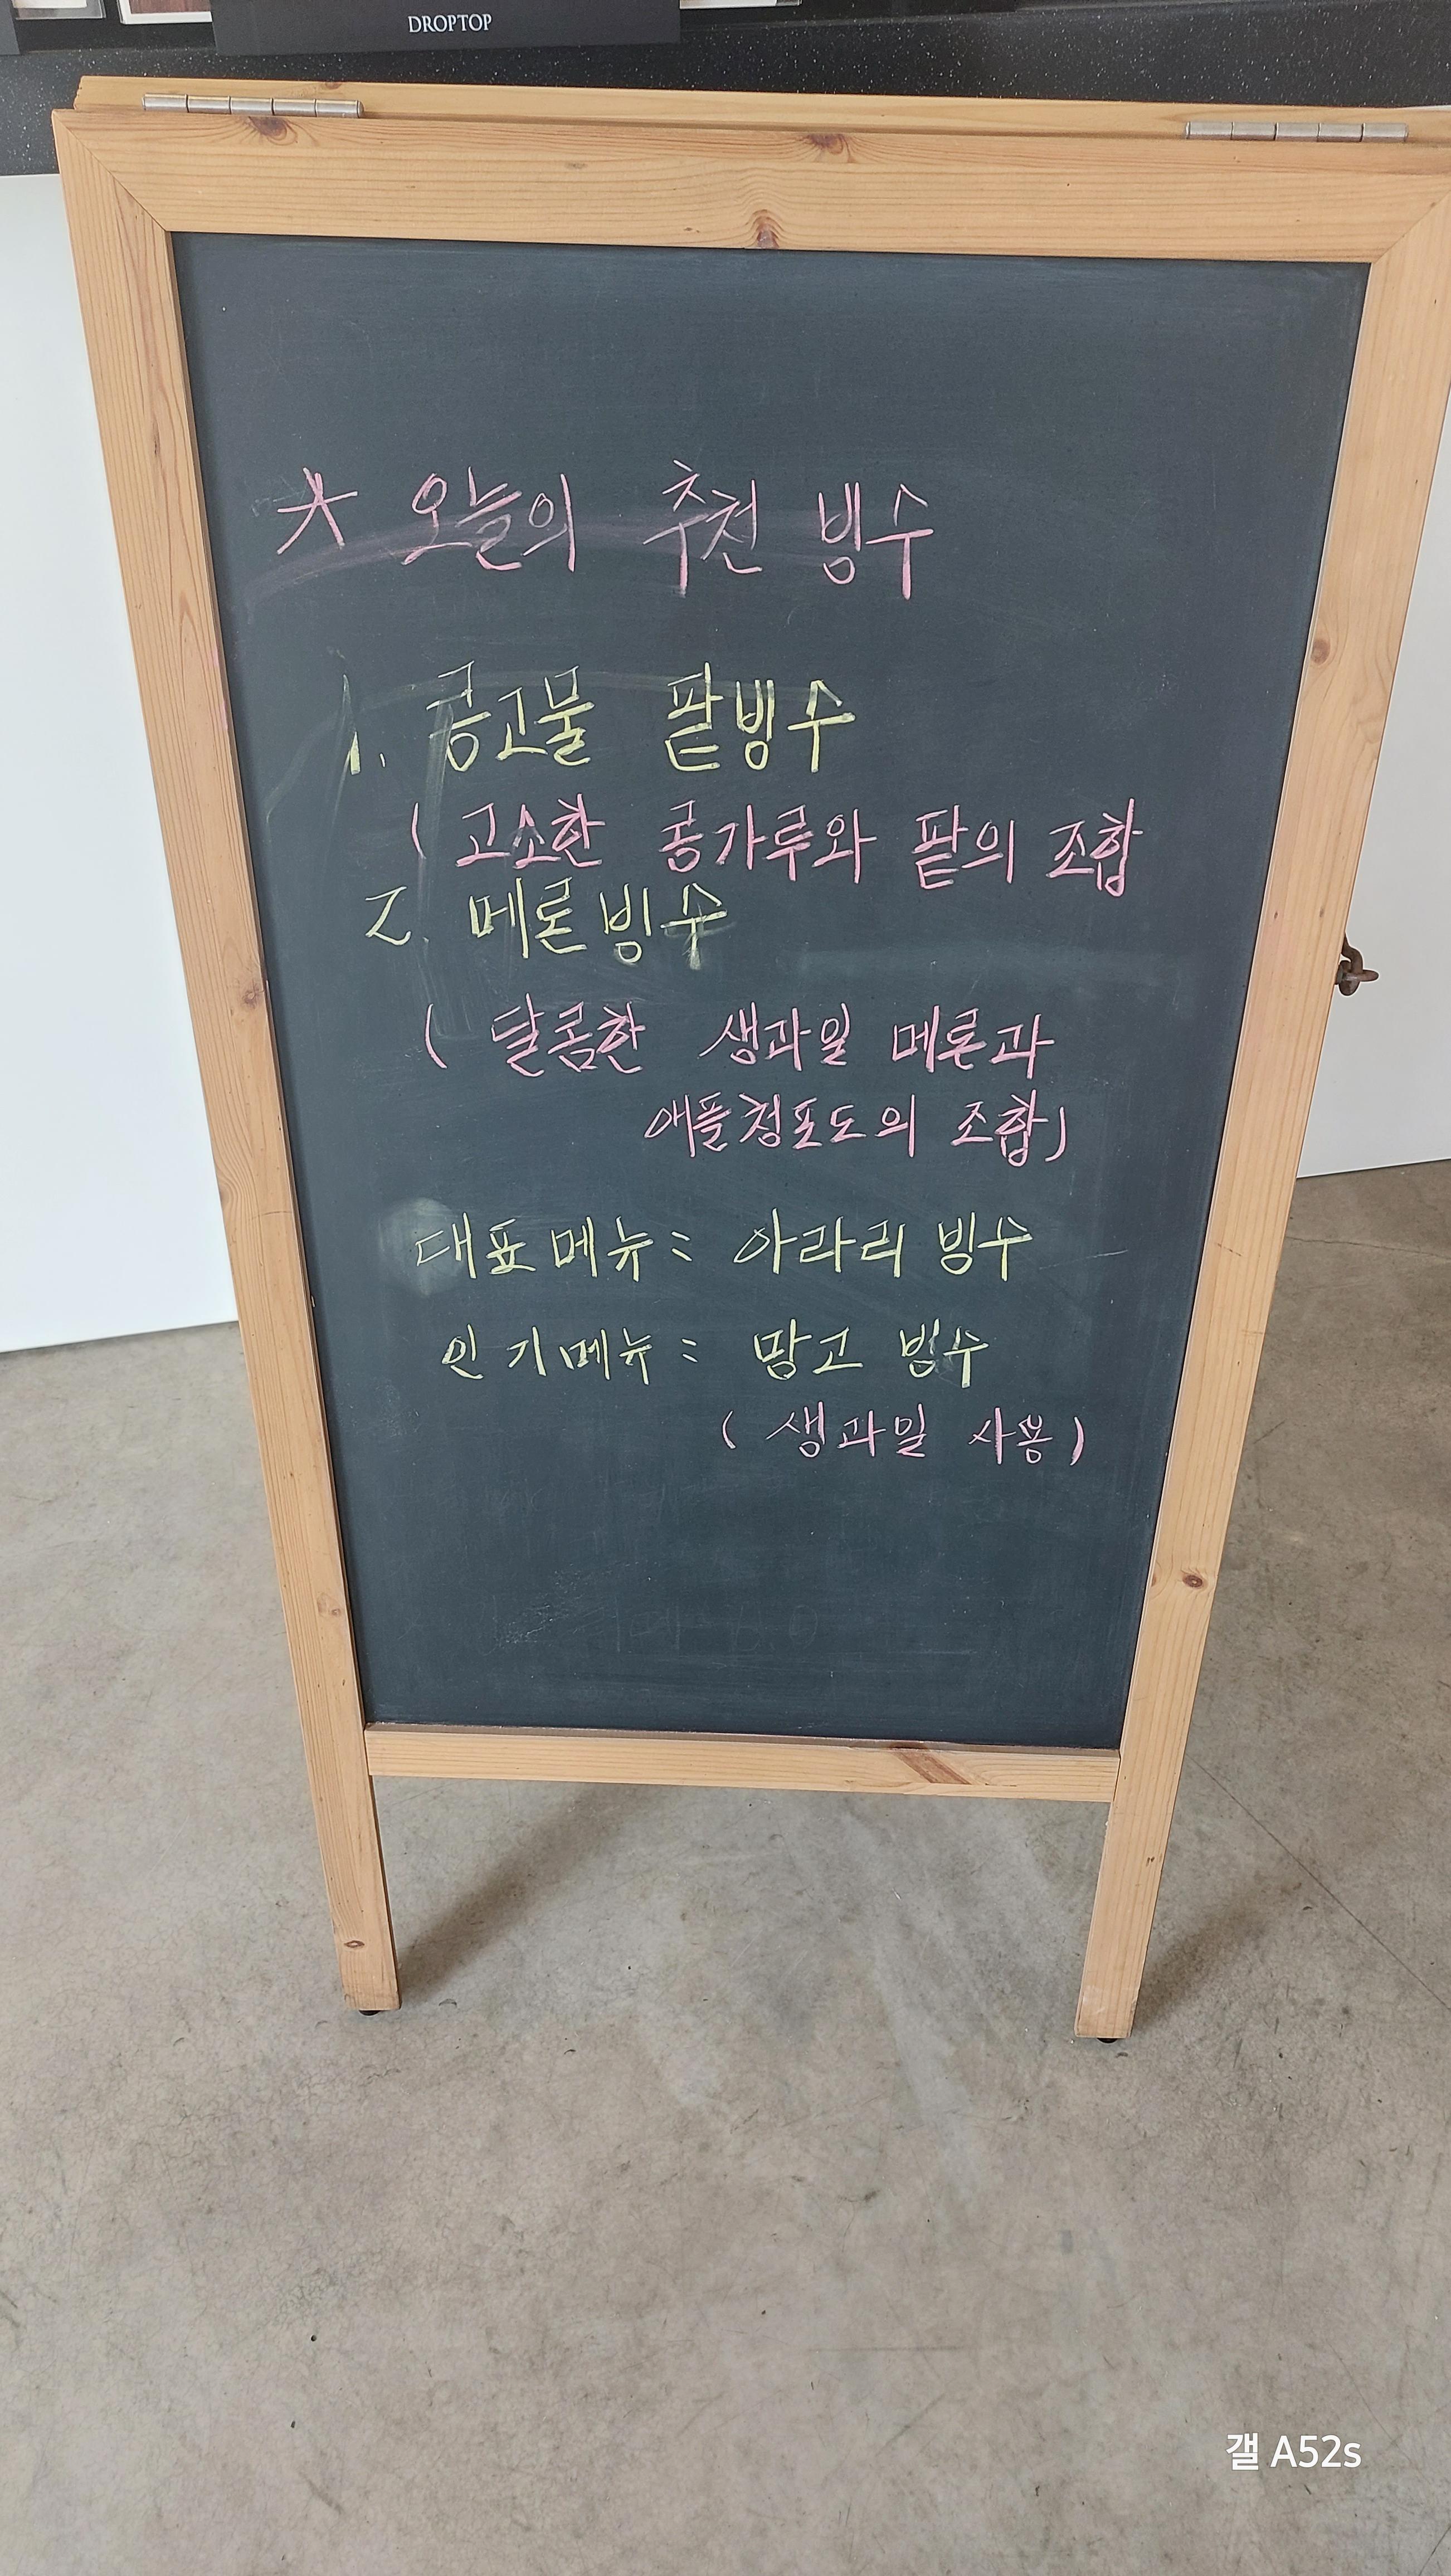 DROPTOP
* 오늘의 추천 빙수
1. 콩고물 팥빙수
( 고소한 콩가루와 팥의 조합
2. 메론빙수
( 달콤한 생과일 메론과
애플청포도의 조합)
대표메뉴: 아라리 빙수
인기메뉴: 망고 빙수
( 생과일 사용 )
갤 A52s